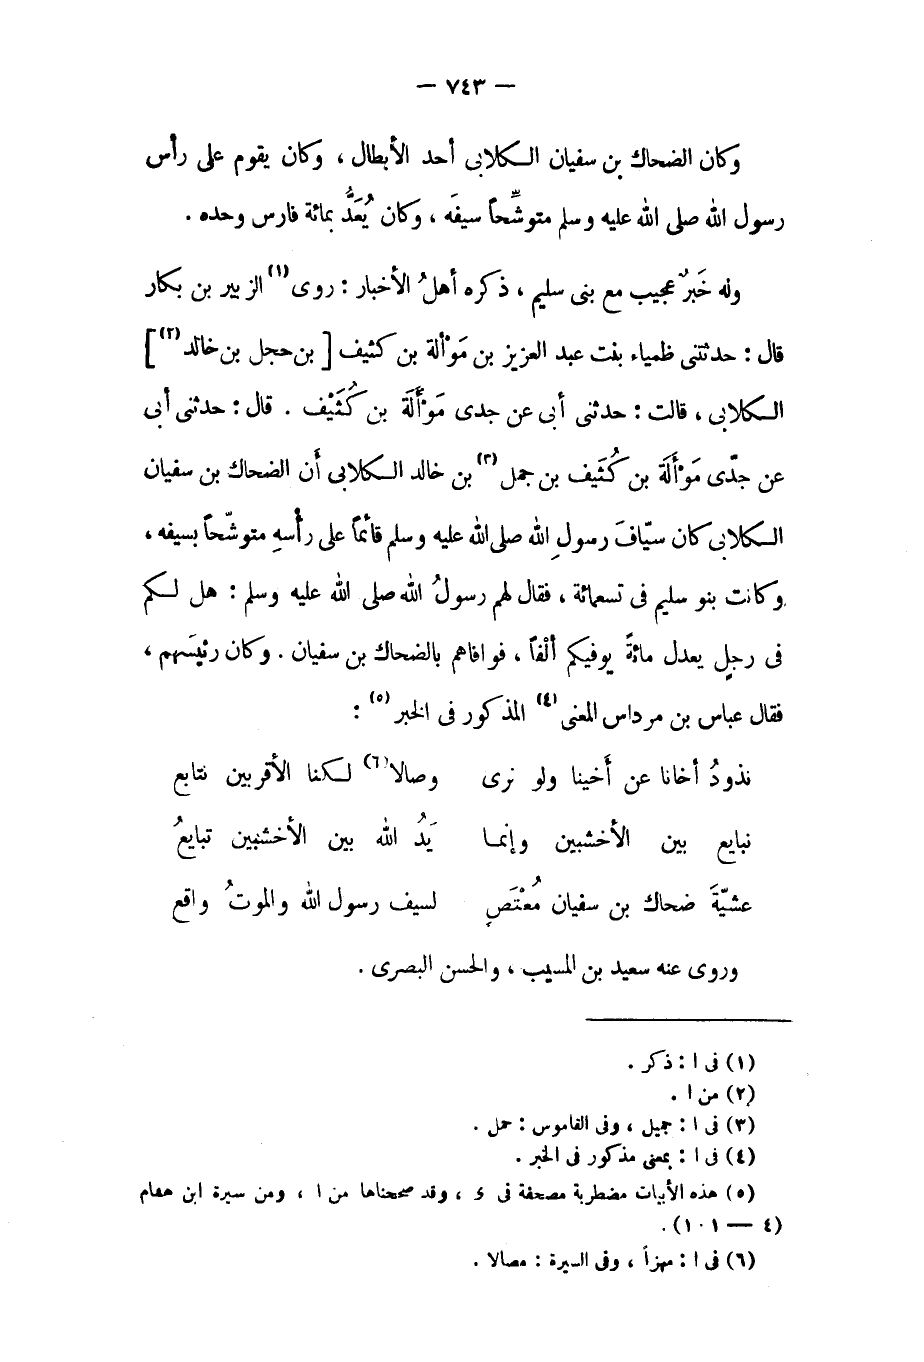 — ٧٤٣ —
وكان الضحاك بن سفيان الكلابى أحد الأبطال ، وكان يقوم على رأس
رسول الله صلى الله عليه وسلم متوشِّحاً سيفَه ، وكان يُعَدُّ بمائة فارس وحده .
وله خَبرٌ عجيب مع بنى سليم ، ذكره أهلُ الأخبار : روى(١) الزبير بن بكار
قال : حدثتنى ظمياء بنت عبد العزيز بن مَوْألة بن كثيف [ بن حجل بن خالد(٢) ]
الكلابى ، قالت : حدثنى أبى عن جدى مَوْأَلَة بن كُثَيْف . قال : حدثنى أبى
عن جدّى مَوْأَلَة بن كُثَيف بن جمل(٣) بن خالد الكلابى أن الضحاك بن سفيان
الكلابى كان سيّافَ رسولِ الله صلى الله عليه وسلم قائماً على رأسهِ متوشّحاً بسيفه ،
وكانت بنو سليم فى تسعمائة ، فقال لهم رسولُ الله صلى الله عليه وسلم : هل لكم
فى رجلٍ يعدل مائةً يوفيكم ألْفاً ، فوافاهم بالضحاك بن سفيان . وكان رئيسَهم ،
فقال عباس بن مرداس المعنى(٤) المذكور فى الخبر(٥) :
نذودُ أخانا عن أخينا ولو نرى وصالا(٦) لكنا الأقربين نتابع
نبايع بين الأخشبين وإنما يَدُ الله بين الأخشبين تبايعُ
عشيّةَ ضحاك بن سفيان مُعْتَصٍ لسيف رسول الله والموتُ واقع
وروى عنه سعيد بن المسيب ، والحسن البصرى .
(١) فى ا : ذكر .
(٢) من ا .
(٣) فى ا : جميل ، وفى القاموس : حمل .
(٤) فى ا : بمعنى مذكور فى الخبر .
(٥) هذه الأبيات مضطربة مصحفة فى ء ، وقد صححناها من ا ، ومن سيرة ابن هشام
(٤ — ١٠١) .
(٦) فى ا : مهزاً ، وفى السيرة : مصالا .